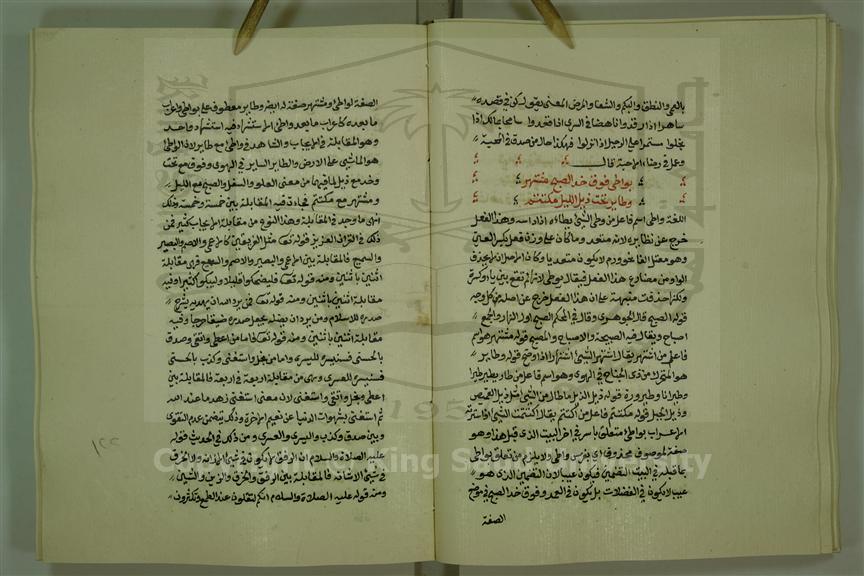 بالعمى والنطق والبكم والشفا والمرض المعنى يقول كن في قصده
ساهرا اذا رقدوا ناهضا في السرى اذا قعدوا سامحا بمالك اذا
بخلوا مستمرا على الرحيل اذا نزلوا فهكذا حال من صدق في المحبة
وعمل في رضا الاحبة قال
بواطئ فوق خد الصبح مشتهر
وطاير تحت ذيل الليل مكتتم
اللغة واطئ اسم فاعل من وطئ الشئ يطاءه اذا داسه وهذا الفعل
خرج عن نظايره لانه متعد وما كان على وزن فعل بكسر العين
وهو معتل الفا غو ورم لا يكون متعديا وكان الاصل ان لا يحذف
الواو من مضارع هذا الفعل فيقال يوطئ لانها لم تقع بين يا وكسرة
ولكنها حذفت منبهة على ان هذا الفعل خرج عن اصله من كل وجه
قوله الصبح قال الجوهري وقال في المحكم الصبح اول النهار والجمع
اصباح ويقال فيه الصبيحة والاصباح والمصبح قوله مشتهر هو اسم
فاعل من اشتهر يقال اشتهر الشئ اشتهارا اذا وضح قوله وطاير
هو المتحرك من ذي الجناح في الهوى وهو اسم فاعل من طار يطير طيرا
وطيرانا وطيرورة قوله ذيل الذيل ما طال من الشئ مثل ذيل القميص
وذيل الجبل قوله مكتتم فاعل من اكتتم يقال اكتتمت الشئ اذا سترته
الاعراب بواطئ متعلق باسر في اخر البيت الذي قبل هذا وهو
صفة لموصوف محذوف اي بفرس واطئ ولا يلزم من تعلق بواطئ
بما قبله في البيت التضمين فيكون عيبا لان التضمين الذي هو
عيب لا يكون في الفضلات بل يكون في العمد وفوق خد الصبح في موضع
الصفة
الصفة لواطئ ومشتهر صفة له ايضا وطاير معطوف على بواطئ واعراب
ما بعده كاعراب ما بعد واطئ الاستشهاد فيه استشهاد واحد
وهو المقابلة في الايجاب والشاهد في واطئ مع طاير لان الواطئ
هو الماشي على الارض والطاير الساير في الهوى وفوق مع تحت
وخد مع ذيل لما فيهما من معنى العلو والسفل والصبح مع الليل
ومشتهر مع مكتتم فجات فيه المقابلة بين خمسة وخمسة وذلك
انهى ما وجد في المقابلة وهذا النوع من مقابلة الايجاب كثير فمن
ذلك في القران العزيز قوله تعالى مثل الفريقين كالاعمى والاصم والبصير
والسميع فالمقابلة بين الاعمى والبصير والاصم والسميع فهي مقابلة
اثنين باثنين ومنه قوله تعالى فليضحكوا قليلا وليبكوا كثيرا وفيه
مقابلة اثنين باثنين ومنه قوله تعالى فمن يرد الله ان يهديه يشرح
صدره للاسلام ومن يرد ان يضله يجعل صدره ضيقا حرجا وفيه
مقابلة اثنين باثنين ومنه قوله تعالى فاما من اعطى واتقى وصدق
بالحسنى فسنيسره لليسرى واما من بخل واستغنى وكذب بالحسنى
فسنيسره للعسرى وهي من مقابلة اربعة في اربعة فالمقابلة بين
اعطى وبخل واتقى واستغنى لان معنى استغنى زهد ما عند الله
ثم استغنى بشهوات الدنيا عن نعيم الاخرة وذلك يتضمن عدم التقوى
وبين صدق وكذب واليسرى والعسرى ومن ذلك في الحديث قوله
عليه الصلاة والسلام ان الرفق لا يكون في شئ الا زانه ولا الخرق
في شئ الا شانه فالمقابلة بين الرفق والخرق والزين والشين
ومنه قوله عليه الصلاة والسلام انكم لتقلون عند الطمع وتكثرون
١٢٢
195
King Sa